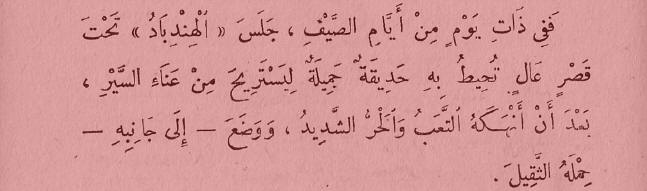 فَفِي ذَاتِ يَوْمٍ مِنْ أَيَّامِ الصَّيْفِ ، جَلَسَ « ٱلْهِنْدِبَادُ » تَحْتَ
قَصْرٍ عَالٍ تُحِيطُ بِهِ حَدِيقَةٌ جَمِيلَةٌ لِيَسْتَرِيحَ مِنْ عَنَاءِ السَّيْرِ ،
بَعْدَ أَنْ أَنْهَكَهُ ٱلتَّعَبُ وَٱلْحَرُّ الشَّدِيدُ ، وَوَضَعَ — إِلَى جَانِبِهِ —
حِمْلَهُ الثَّقِيلَ .